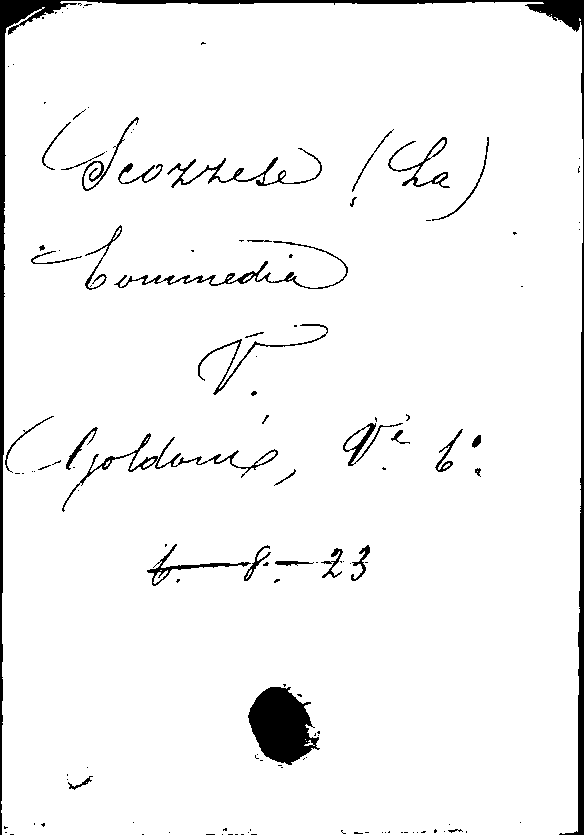 Scozzese (La)
Commedia
V.
Goldoni, V.e C.o
6. - 8. - 23